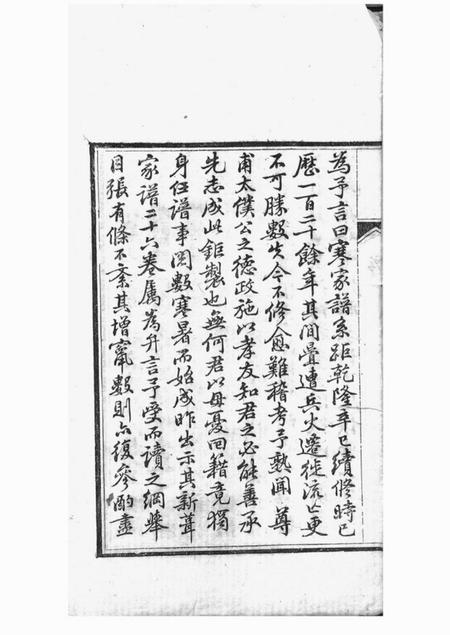 為予言曰寒家譜系距乾隆辛巳續修時已
歷一百二十餘年其間疊遭兵火遷徙流亡更
不可勝數失今不修愈難稽考予熟聞 尊
甫太僕公之德政施以孝友知君之必能善承
先志成此鉅製也無何君以母憂回籍竟獨
身任譜事閱數寒暑而始成昨出示其新葺
家譜二十六卷屬為升言予受而讀之綱舉
目張有條不紊其增竄數則亦復參酌盡